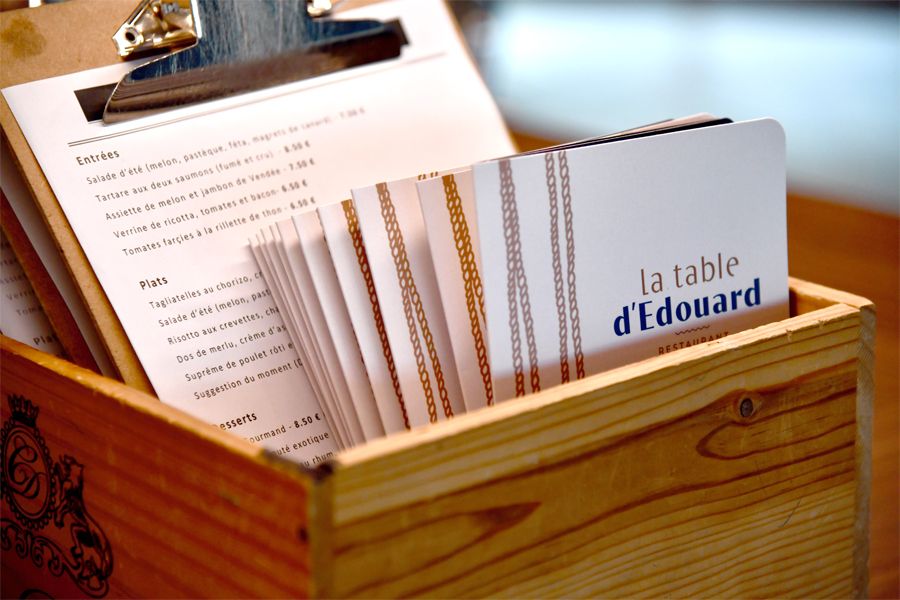 Entrées
Salade d'été (melon, pastèque, fêta, magrets de canard) - 7.50 €
Tartare aux deux saumons (fumé et cru) - 8.50 €
Assiette de melon et jambon de Vendée - 7.50 €
Verrine de ricotta, tomates et bacon- 6.50 €
Tomates farçies à la rillette de thon - 6.50 €
Plats
Tagliatelles au chorizo,
Salade d'été (melon,
Risotto aux crevettes,
Dos de merlu, crème
Suprême de poulet rôti
Suggestion du moment
Desserts
Gourmand - 8.50 €
exotique
au rhum
la table
d'Edouard
RESTAURANT